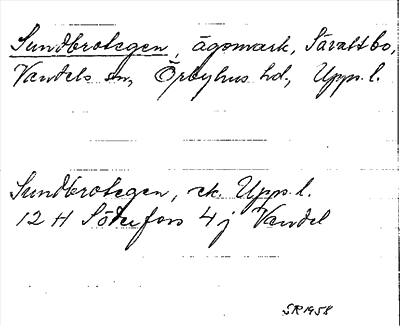 Sundbrotegen, ägomark, Sävastbo,
Vendels sn, Örbyhus hd, Upps. l.
Sundbrotegen, ek. Upps. l.
12 H Söderfors 4j Vendel
SR 1958